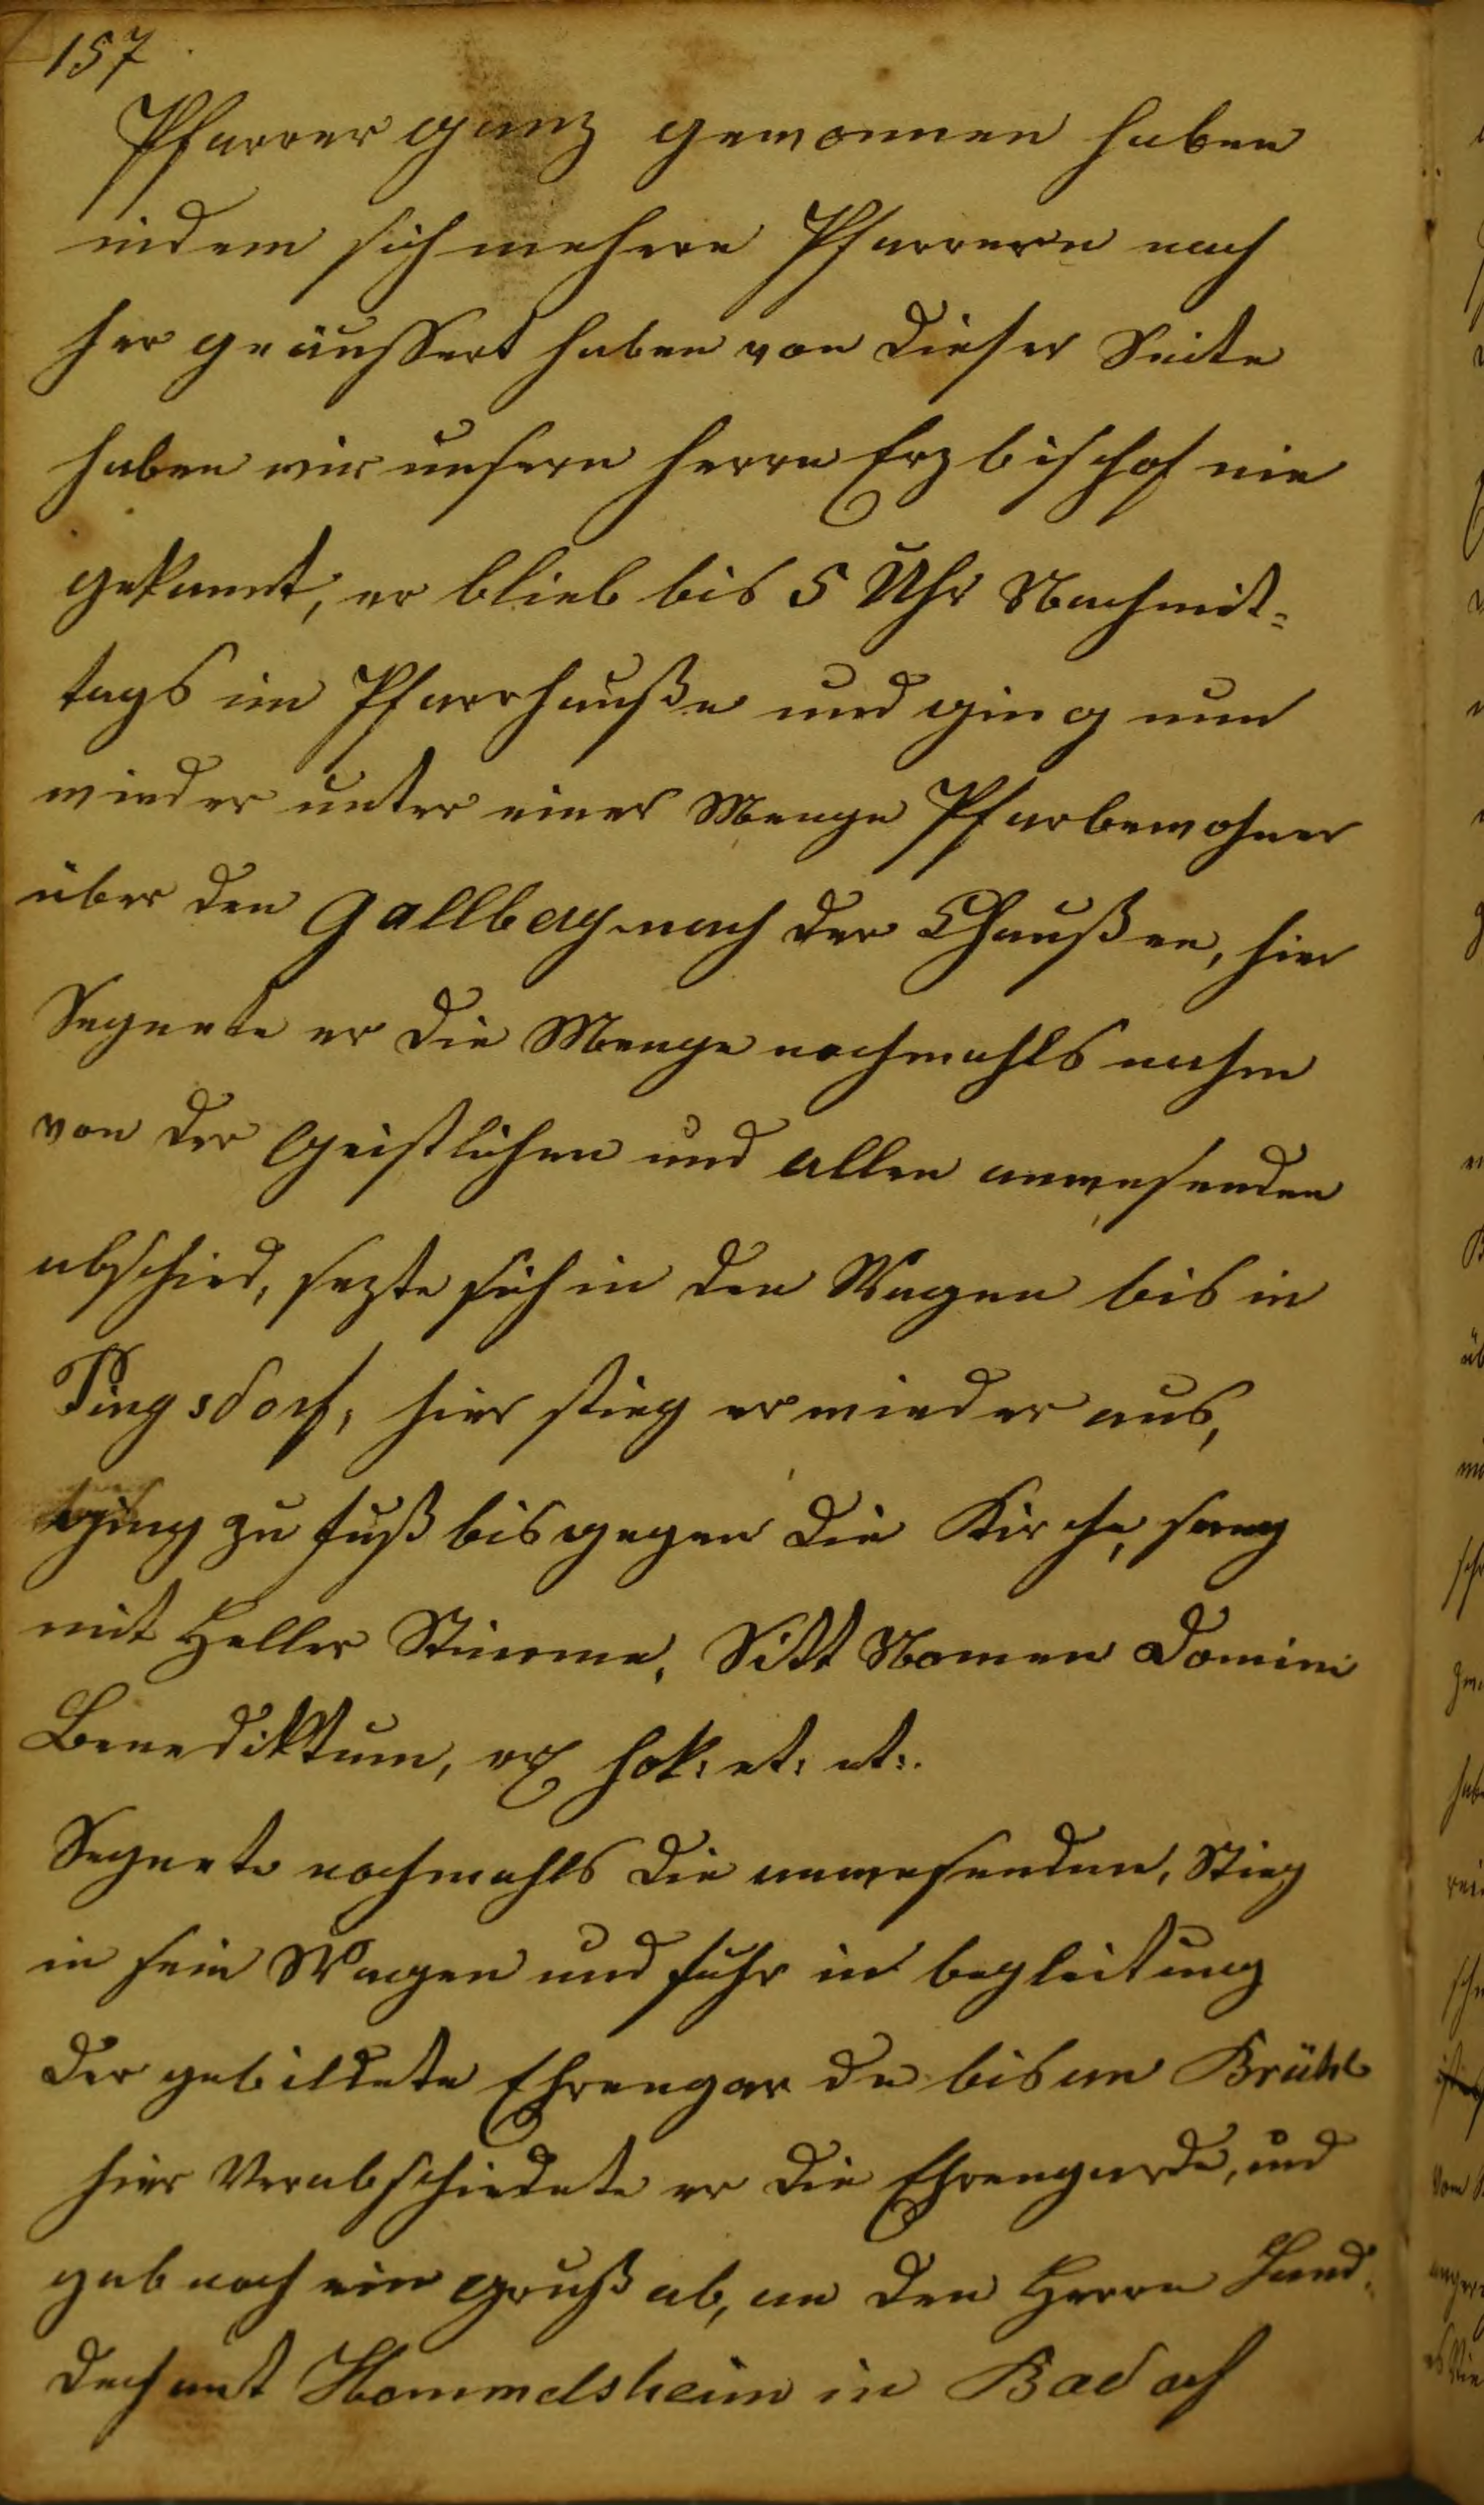 157
Pfarrer ganz gewonnen haben
indem sich mehere Pfarrern nach
her geäussert haben von dieser Seite
haben wir unsern herrn Erzbischof nie
gekannt, er blieb bis 5 Uhr Nachmit-
tags im Pfarrhauße und ging nun
wieder unter einer Menge Pfarbewohner
über den Gallberg nach der Chaußee, hier
Segnete er die Menge nochmahls nahm
von der Geistlichen und allen anwesenden
abschied, sezte sich in den Wagen bis in
Pingsdorf, hier stieg er wieder aus,
ging zu fuß bis gegen die Kirche, sang
mit Heller Stimme, Sitt Nomen Domini
Benediktum, ex hok: et: et:.
Segnete nochmahls die anwesenden, Stieg
in sein Wagen und fuhr in begleitung
der gebildete Ehrengarde bis an Brühl
hier Verabschiedete er die Ehrengarde, und
gab noch ein gruß ab, an den Herrn Land-
dechant Hommelsheim in Badorf